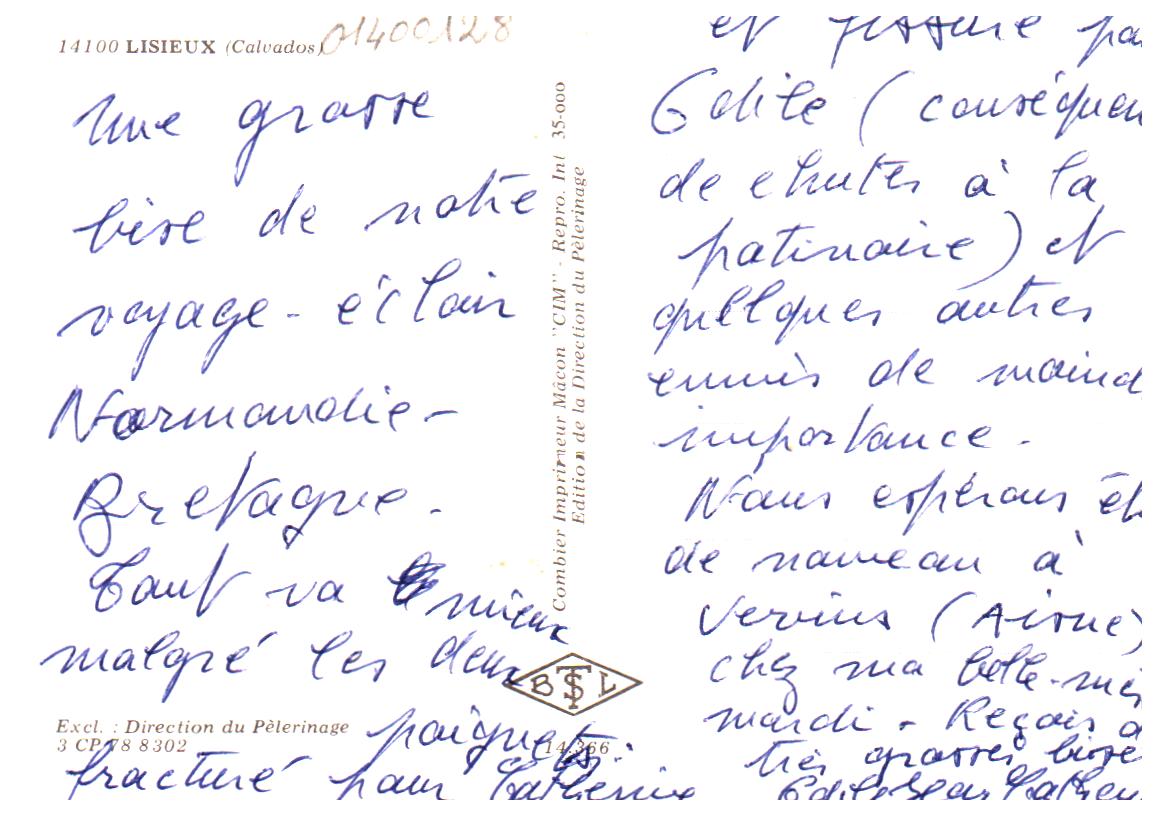 14100 LISIEUX (Calvados)
01400128
Une grosse
bise de notre
voyage-éclair
Normandie-
Bretagne.
Tout va mieux
malgré les deux
poignets:
fracturé pour Catherine
et fissuré pa
Edite (conséquen
de chutes à la
patinoire) et
quelques autres
ennuis de moind
importance.
Nous espérons êt
de nouveau à
Vervins (Aisne)
chez ma belle-mè
mardi. Reçois
très grosses bise
Edite Jean Cathe
Combier Imprimeur Mâcon "CIM" - Repro. Int 35-000
Edition de la Direction du Pèlerinage
BSTL
Excl. : Direction du Pèlerinage
3 CP 78 8302
14.366